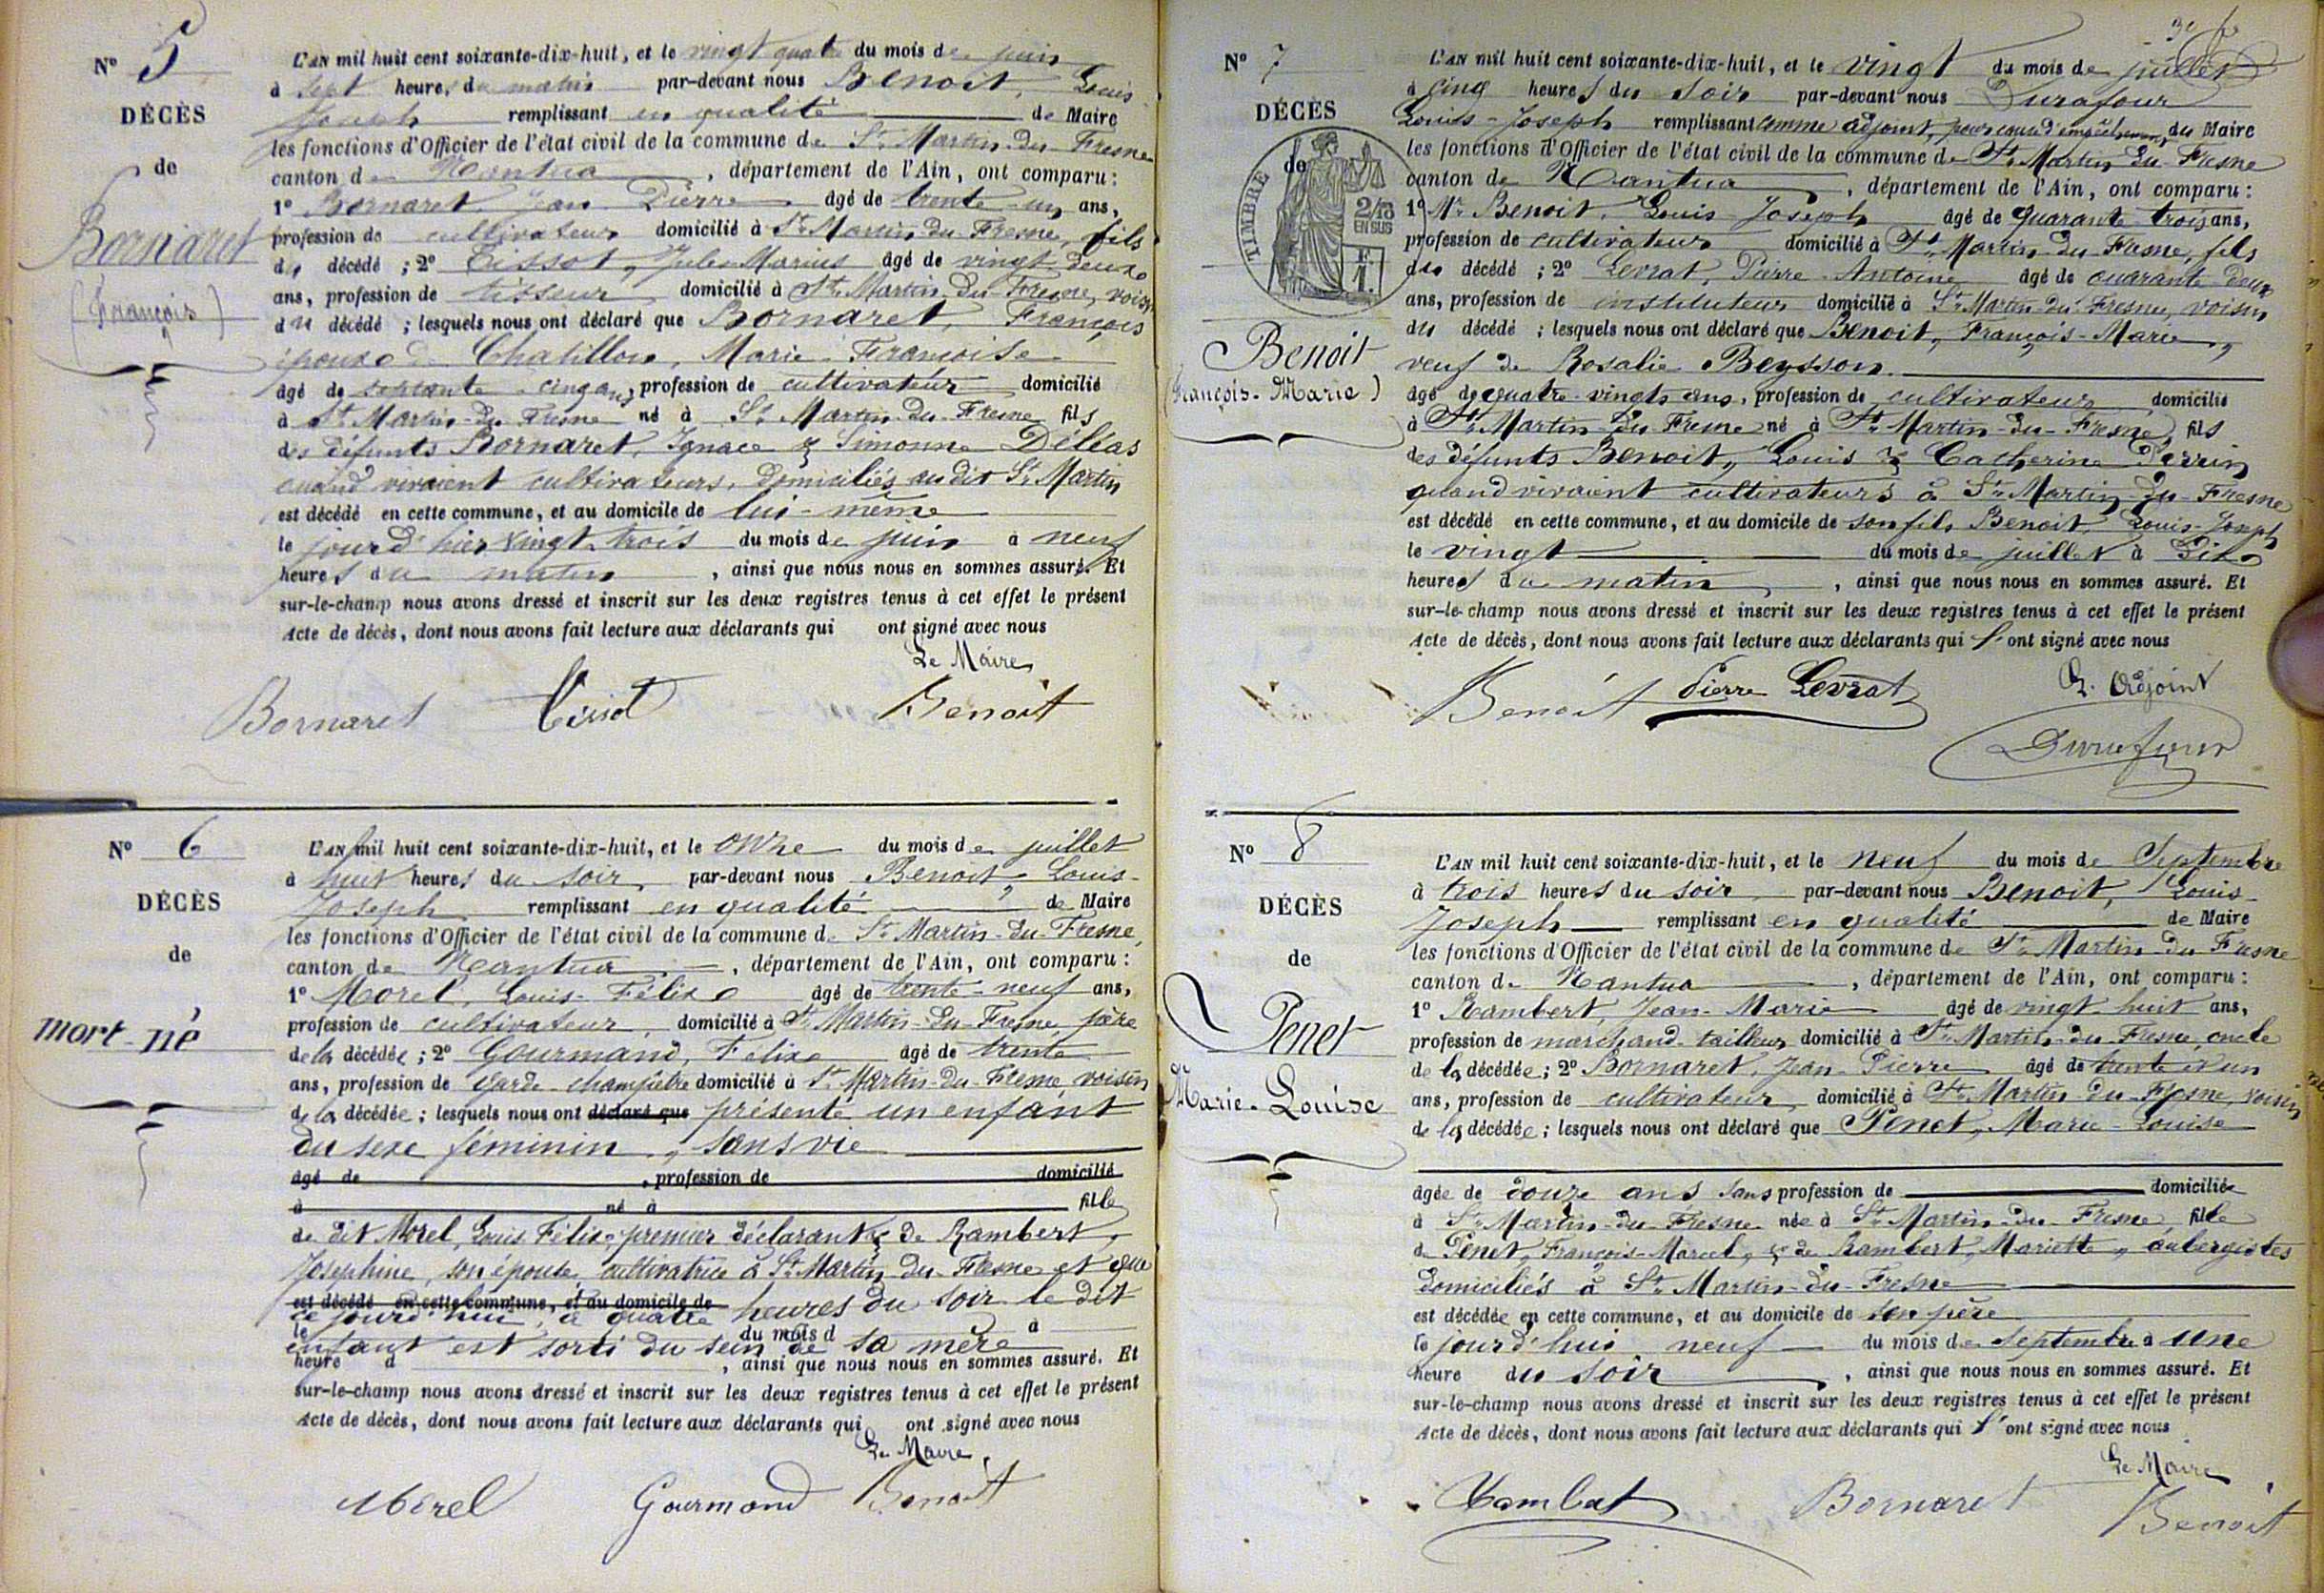 N° 5
DÉCÈS
de
Bornaret
(François)
L'AN mil huit cent soixante-dix-huit, et le vingt quatre du mois de juin
à sept heures du matin par-devant nous Benoit, Louis
Joseph remplissant en qualité de Maire
les fonctions d'Officier de l'état civil de la commune de St Martin-du-Fresne
canton de Nantua, département de l'Ain, ont comparu:
1° Bornaret, Jean Pierre âgé de trente-un ans,
profession de cultivateur domicilié à St Martin du Fresne, fils
du décédé; 2° Tissot, Jules Marius âgé de vingt deux
ans, profession de tisseur domicilié à St Martin-du-Fresne, voisin
du décédé; lesquels nous ont déclaré que Bornaret, François
époux de Chatillon, Marie-Françoise
âgé de septante-cinq ans, profession de cultivateur domicilié
à St Martin-du-Fresne né à St Martin-du-Fresne fils
des défunts Bornaret, Ignace & Simonne Délias
quand vivaient cultivateurs, domiciliés au dit St Martin
est décédé en cette commune, et au domicile de lui-même
le jourd'hier vingt-trois du mois de juin à neuf
heures du matin, ainsi que nous nous en sommes assuré. Et
sur-le-champ nous avons dressé et inscrit sur les deux registres tenus à cet effet le présent
Acte de décès, dont nous avons fait lecture aux déclarants qui ont signé avec nous
Le Maire
Bornaret Tissot Benoit
N° 6
DÉCÈS
de
mort-né
L'AN mil huit cent soixante-dix-huit, et le onze du mois de juillet
à huit heures du soir, par-devant nous Benoit, Louis-
Joseph remplissant en qualité de Maire
les fonctions d'Officier de l'état civil de la commune de St Martin-du-Fresne,
canton de Nantua, département de l'Ain, ont comparu:
1° Morel, Louis-Félix âgé de trente-neuf ans,
profession de cultivateur, domicilié à St Martin-du-Fresne, père
de la décédée; 2° Gourmand, Félix âgé de trente
ans, profession de garde-champêtre domicilié à St Martin-du-Fresne voisin
de la décédée; lesquels nous ont déclaré que présenté un enfant
du sexe féminin, sans vie
âgé de, profession de domicilié
à né à fille
de dit Morel, Louis Félix, premier déclarant & de Rambert,
Josephine, son épouse, cultivatrice à St Martin-du-Fresne et que
est décédé en cette commune, et au domicile de heures du soir le dit
ce jourd'hui, à quatre
le du mois d à
enfant est sorti du sein de sa mère
heure d, ainsi que nous nous en sommes assuré. Et
sur-le-champ nous avons dressé et inscrit sur les deux registres tenus à cet effet le présent
Acte de décès, dont nous avons fait lecture aux déclarants qui ont signé avec nous
Le Maire,
Morel Gourmand Benoit
N° 7
DÉCÈS
de
TIMBRE
2/10 EN SUS
F. 1.
Benoit
(François-Marie)
L'AN mil huit cent soixante-dix-huit, et le vingt du mois de juillet
à cinq heures du soir par-devant nous Durafour
Louis-Joseph remplissant comme adjoint, pour cause d'empêchement, du Maire
les fonctions d'Officier de l'état civil de la commune de St Martin du Fresne
canton de Nantua, département de l'Ain, ont comparu:
1° Mr Benoit, Louis-Joseph âgé de quarante trois ans,
profession de cultivateur domicilié à St Martin du Fresne, fils
du décédé; 2° Levrat, Pierre-Antoine âgé de quarante-deux
ans, profession de instituteur domicilié à St Martin du Fresne, voisin
du décédé; lesquels nous ont déclaré que Benoit, François-Marie,
veuf de Rosalie Beysson.
âgé de quatre-vingts ans, profession de cultivateur domicilié
à St Martin-du-Fresne né à St Martin-du-Fresne, fils
des défunts Benoit, Louis & Catherine Perrin
quand vivaient cultivateurs à St Martin-du-Fresne
est décédé en cette commune, et au domicile de son fils Benoit, Louis-Joseph
le vingt du mois de juillet à dix
heures du matin, ainsi que nous nous en sommes assuré. Et
sur-le-champ nous avons dressé et inscrit sur les deux registres tenus à cet effet le présent
Acte de décès, dont nous avons fait lecture aux déclarants qui l'ont signé avec nous
L'Adjoint
Benoit Pierre Levrat
Durafour
N° 8
DÉCÈS
de
Penet
Marie-Louise
L'AN mil huit cent soixante-dix-huit, et le neuf du mois de Septembre
à trois heures du soir par-devant nous Benoit, Louis-
Joseph remplissant en qualité de Maire
les fonctions d'Officier de l'état civil de la commune de St Martin-du-Fresne
canton de Nantua, département de l'Ain, ont comparu:
1° Rambert, Jean-Marie âgé de vingt-huit ans,
profession de marchand-tailleur domicilié à St Martin-du-Fresne, oncle
de la décédée; 2° Bornaret, Jean-Pierre âgé de trente et un
ans, profession de cultivateur domicilié à St Martin-du-Fresne, voisin
de la décédée; lesquels nous ont déclaré que Penet, Marie-Louise
âgée de douze ans sans profession de domiciliée
à St Martin-du-Fresne née à St Martin-du-Fresne, fille
de Penet, François-Marcel, & de Rambert, Mariette, aubergistes
domiciliés à St Martin-du-Fresne
est décédée en cette commune, et au domicile de son père
le jourd'hui neuf du mois de septembre à une
heure du soir, ainsi que nous nous en sommes assuré. Et
sur-le-champ nous avons dressé et inscrit sur les deux registres tenus à cet effet le présent
Acte de décès, dont nous avons fait lecture aux déclarants qui l'ont signé avec nous
Le Maire
Rambert Bornaret Benoit